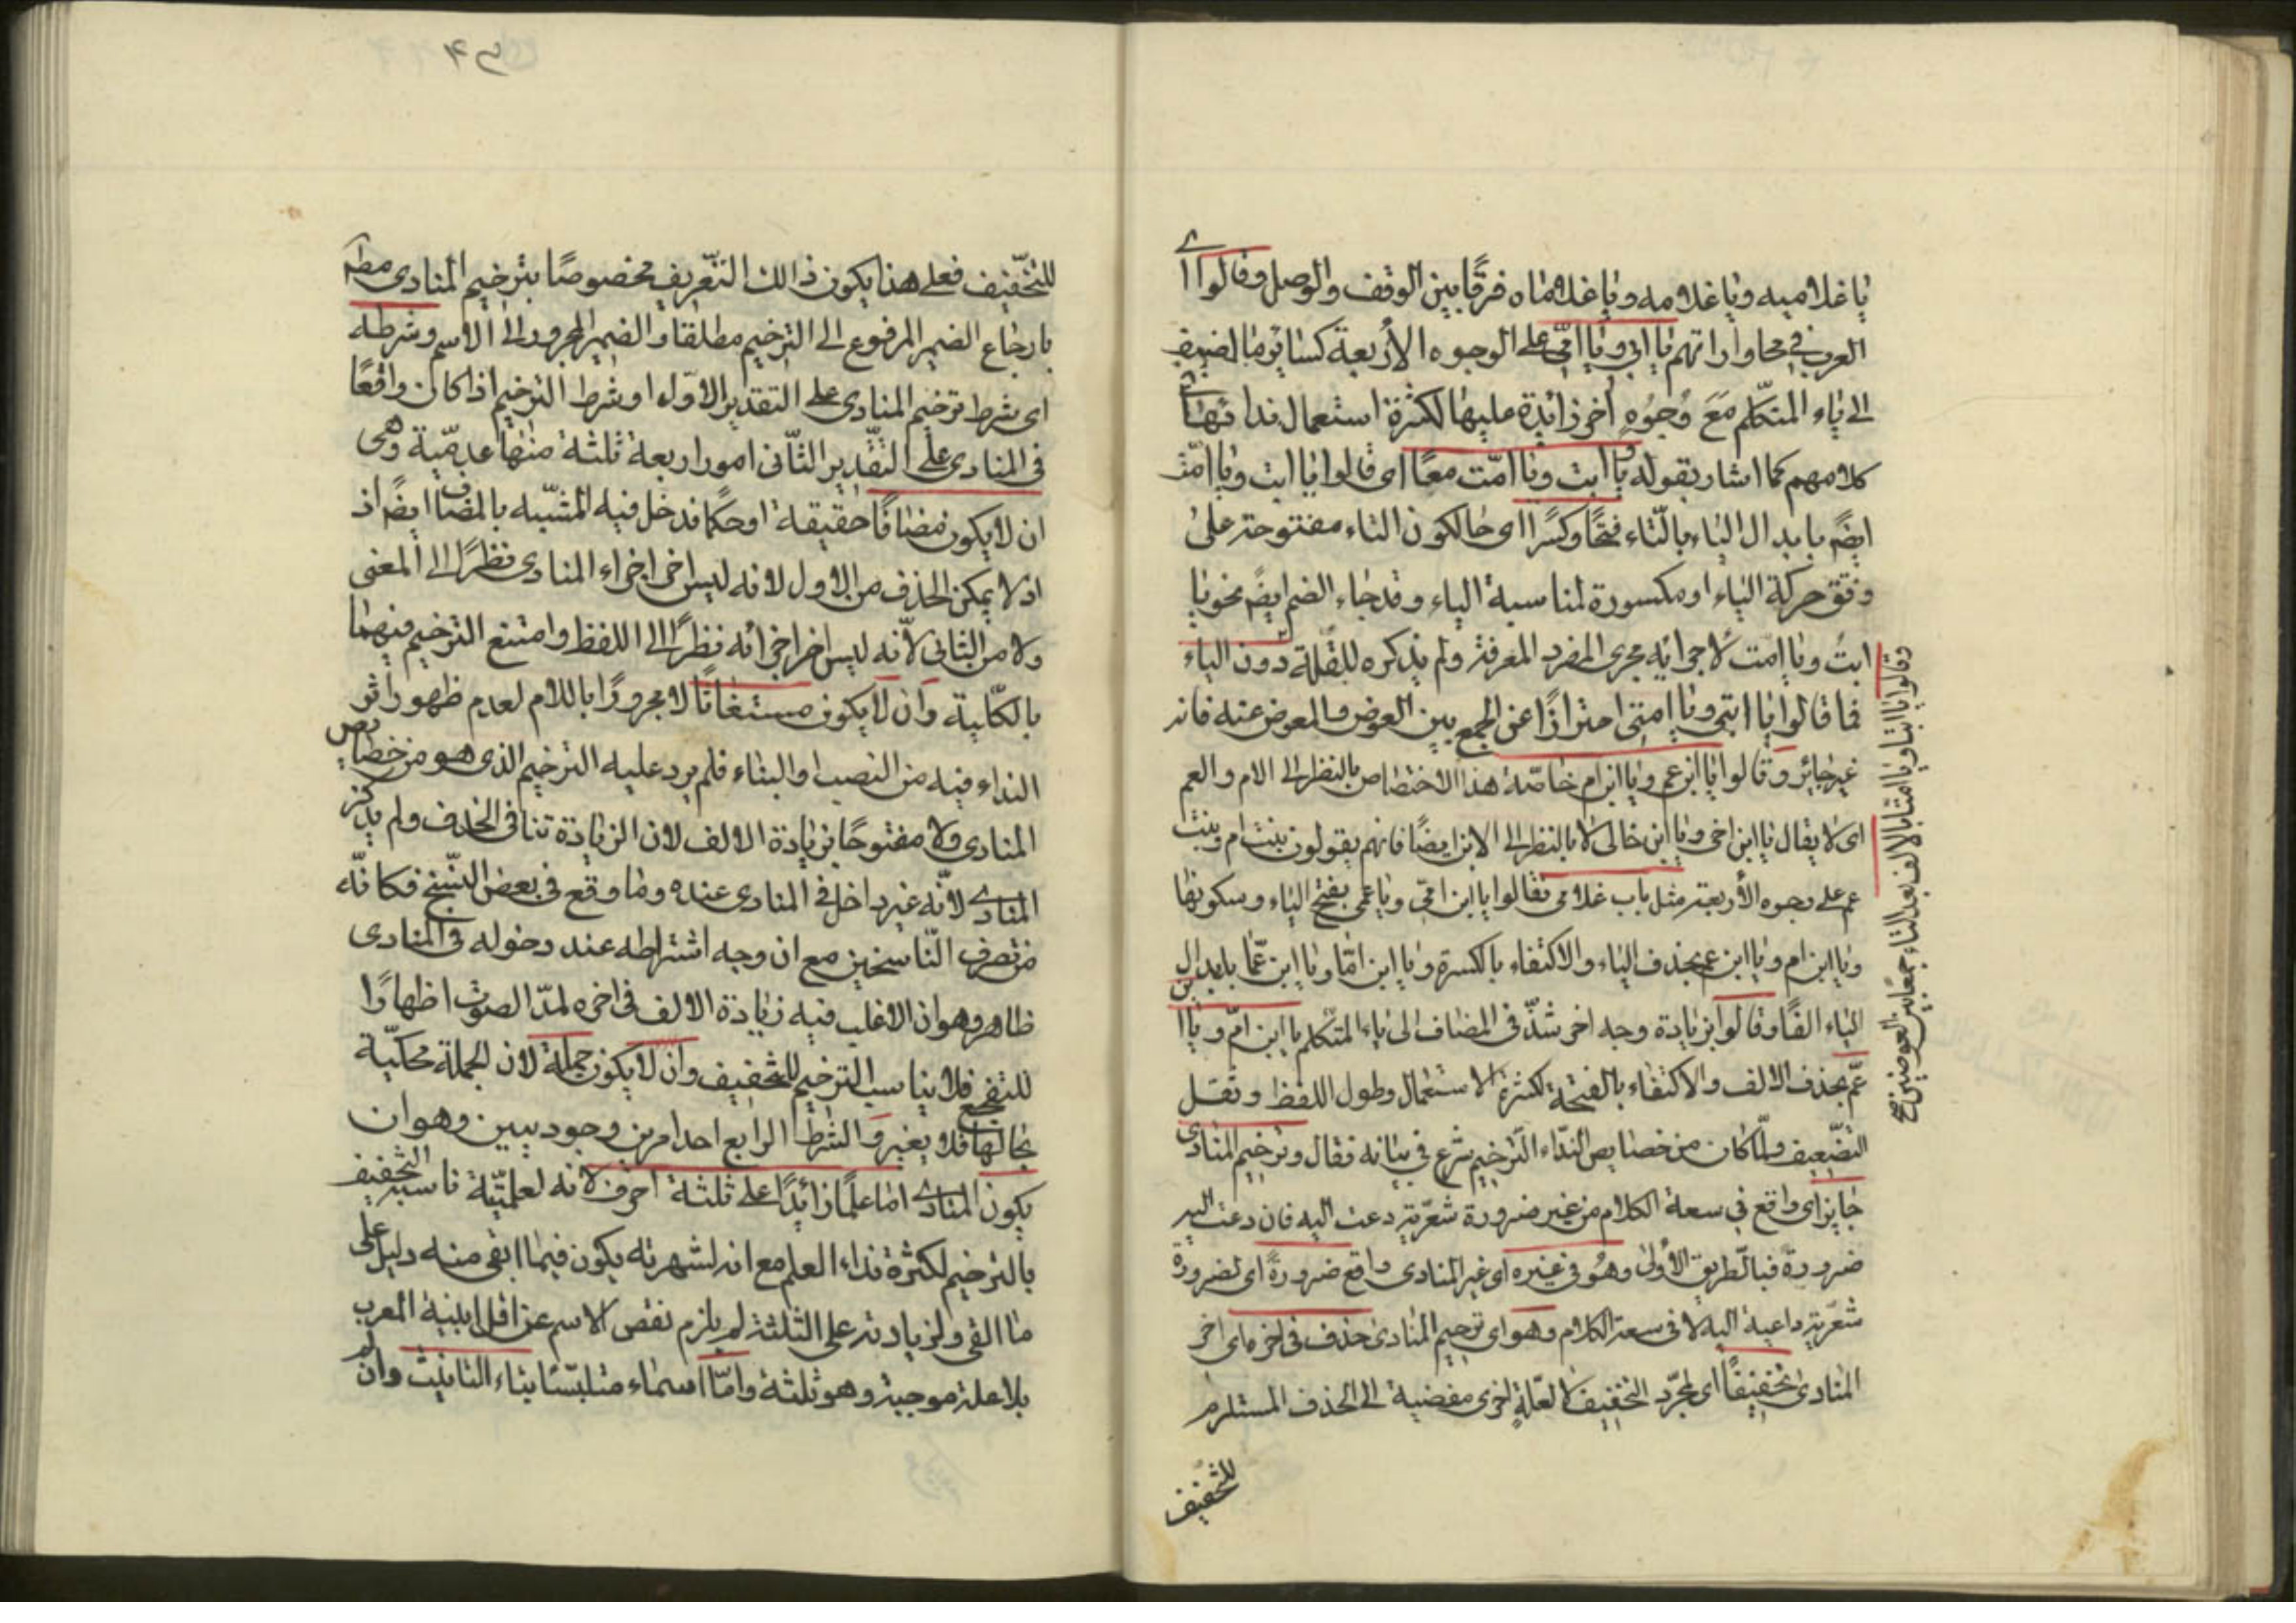 يا غلاميه ويا غلامه ويا غلاماه فرقًا بين الوقف والوصل وقالوا ا
العرب في محاوراتهم يا ابي ويا امّي على الوجوه الأربعة كسائر ما اضيف
الى ياء المتكلم مَعَ وُجوُهٍ اُخر زائدة عليها لكثرة استعمال نداءٔهما في
كلامهم كما اشار بقوله يا ابت ويا امّت معًا اى قالوا يا ابت ويا امّت
ايضً بابدال الياء بالتّاء فتحًا وكسرًا اى حالكون التاء مفتوحة على
وفق حركة الياء او مكسورة لمناسبة الياء وقد جاء الضم ايضً نحو يا
ابتُ ويا امّت لاجرائه مجرى المفرد المعرفة ولم يذكره للقلة دون الياء
فما قالوا يا ابتى ويا امتى احترازًا عن الجمع بين العوض والمعوض عنه فانه
غير جائز وقالوا يا ابن عم ويا ابن ام خاصّة هذا الاختصاص بالنظر الى الام والعم
اى لا يقال يا ابن اخى ويا ابن خالى لا بالنظر الى الابن ايضًا فانهم يقولون بنت ام وبنت
عم على وجوه الأربعة مثل باب غلامى فقالوا يا ابن امّى ويا عمى بفتح الياء وسكونها
ويا ابن ام ويا ابن عم بحذف الياء والاكتفاء بالكسرة ويا ابن امّا ويا ابن عمّا بابدال
الياء الفًا وقالوا بزيادة وجه اخر شذّ في المضاف الى ياء المتكلم يا ابن امّ ويا ابن
عمّ بحذف الالف والاكتفاء بالفتحة لكثرة الاستعمال وطول اللفظ وثقل
التضّعيف ولمّا كان من خصايص النّداء التّرخيم شرع في بيانه فقال وترخيم المنادى
جايز اى واقع في سعة الكلام من غير ضرورة شعّرية دعت اليه فان دعت اليه
ضرورة فبالطّريق الأولى وهُو في غيره اى غير المنادى واقع ضرورةً اى لضرورة
شعّرية داعية اليه لا فى سعة الكلام وهو اى ترخيم المنادى حذف فى اخره اى اخر
المنادى تخفيفًا اى لمجرّد التخفيف لا لعّلةٍ اخرى مفضية الى الحذف المستلزم
للتخفيف
وقالوا يا ابتا ويا امتا بالالف بعد التاء جمعًا بين العوضين صح
للتخّفيف فعلى هذا يكون ذالك التّعريف مخصوصًا بترخيم المنادى مط
بارجاع الضمير المرفوع الى الترخيم مطلقا والضمير المجرور الى الاسم وشرطه
اى شرط ترخيم المنادى على التقدير الاوّل او شرط الترخيم اذا كان واقعًا
فى المنادى على التّقدير الثّانى امور اربعة ثلثة منها عدميّة وهى
ان لا يكون مضافًا حقيقة او حكمًا فدخل فيه المشّبه بالمضاف ايضً اذ
اذ لا يمكن الحذف من الاول لانه ليس اخر اجزاء المنادى نظرًا الى المعنى
ولا من الثانى لأنّه ليس اخر اجزائه نظرًا الى اللفظ وامتنع الترخيم فيهما
بالكّلية وان لا يكون مستغاثًا لا مجرورًا باللام لعدم ظهور اثر
النداء فيه من النصب والبناء فلم يرد عليه الترخيم الذى هو من خصايص
المنادى ولا مفتوحًا بزيادة الالف لان الزيادة تنافى الحذف ولم يذكر
المنادى لأنّه غير داخل فى المنادى عنده وما وقع فى بعض النّسخ فكانّه
من تصرف النّاسخين مع ان وجه اشتراطه عند دخوله فى المنادى
ظاهر وهو ان الاغلب فيه زيادة الالف فى اخره لمدّ الصوت اظهارًا
للتفجع فلا يناسب الترخيم للتخفيف وان لا يكون جملة لان الجملة محكيّة
بحالها فلا يغير والشرط الرابع احد امرين وجوديين وهو ان
يكون المنادى اما علمًا زائدًا على ثلثة احرف لانه لعلميّة ناسب التخفيف
بالترخيم لكثرة نداء العلم مع انه لشهرته يكون فيما ابقى منه دليل على
ما القى ولزيادته على الثلثة لم يلزم نقص الاسم عن اقل ابنية المعرب
بلا علة موجبة وهو ثلثة وامّا اسماء متلبّسًا بتاء التانيث وان لم